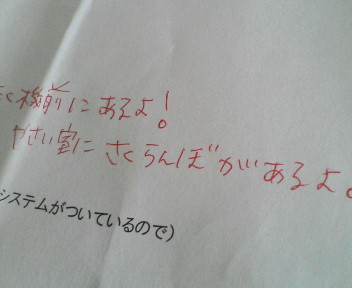 く機前にあるよ！
やさい室にさくらんぼがあるよ。
システムがついているので）